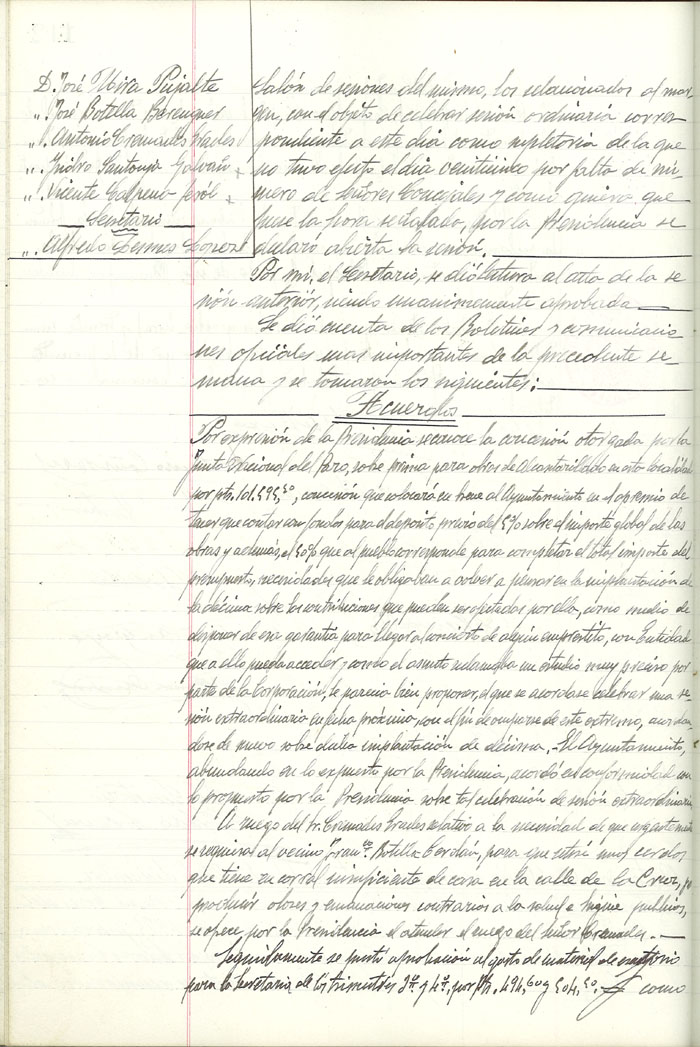 D. José Mira Pujalte
". José Botella Berenguer
". Antonio Cremades Prades
". Isidro Santonja Galvañ
". Vicente Calpena
Secretario
". Alfredo Lesmes
salón de sesiones del mismo, los relacionados al mar-
gen, con el objeto de celebrar sesión ordinaria corres-
pondiente a este dia como supletoria de la que
no tuvo efecto el dia veinticinco por falta de nú-
mero de Señores Concejales y como quiera que
fuese la hora señalada, por la Presidencia se
declaró abierta la sesión.
Por mi, el Secretario, se dió lectura al acta de la se-
sión anterior, siendo unanimemente aprobada
Se dió cuenta de los Boletines y comunicacio-
nes oficiales mas importantes de la precedente se-
mana y se tomaron los siguientes:
Acuerdos
Por expresión de la Presidencia se conoce la concesión otorgada por la
Junta Nacional del Paro, sobre prima para obras de Alcantarillado en esta localidad
por pts. 101.595,50, concesión que colocará en breve al Ayuntamiento en el apremio de
tener que contar con fondos para el depósito previo del 5% sobre el importe global de las
obras y además, el 50% que al pueblo corresponde para completar el total importe del
presupuesto, necesidades que le obligaban a volver a pensar en la implantación de
la décima sobre las contribuciones que puedan ser afectadas por ella, como medio de
disponer de esa garantia para llegar al concierto de algún emprestito, con Entidad
que a ello pueda acceder y como el asunto reclamaba un estudio muy preciso por
parte de la Corporación, le parecia bien proponer, el que se acordase celebrar una se-
sión extraordinaria en fecha próxima, con el fin de ocuparse de este extremo, acordan-
dose de nuevo sobre dicha implantación de décima. - El Ayuntamiento,
abundando en lo expuesto por la Presidencia, acordó en conformidad con
lo propuesto por la Presidencia sobre tal celebración de sesión extraordinaria
A ruego del Sr. Cremades Prades relativo a la necesidad de que urgentemente
se requiera al vecino Franco. Botella Cerdán, para que retire unos cerdos
que tiene en corral insuficiente de casa en la calle de la Cruz, por
producir olores y emanaciones contrarios a la salud e higiene publicas,
se ofrece por la Presidencia el atender el ruego del Señor Cremades. -
Seguidamente se prestó aprobación al gasto de material de escritorio
para la Secretaria de los trimestres 3º y 4º, por pts. 494,60 y 504,50. - Y como